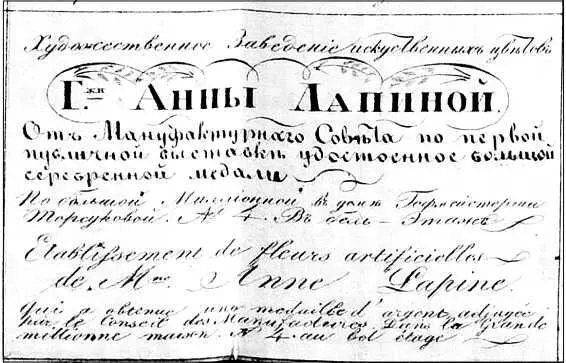 Художественное Заведеніе искуственныхъ цвѣтовъ
Г.жи Анны Лапиной.
Отъ Мануфактурнаго Совѣта по первой
публичной выставкѣ удостоенное большой
серебренной медали
По большой Миллионной въ домѣ Гофмейстерши
Торсуковой № 4. Въ бель-Этажѣ
Etablissement de fleurs artificielles
de Mme Anne Lapine.
qui a obtenue une medaille d'argent adjugée
par le Conseil des Manufactures. Dans la Grande
millionne maison № 4 au bel etage